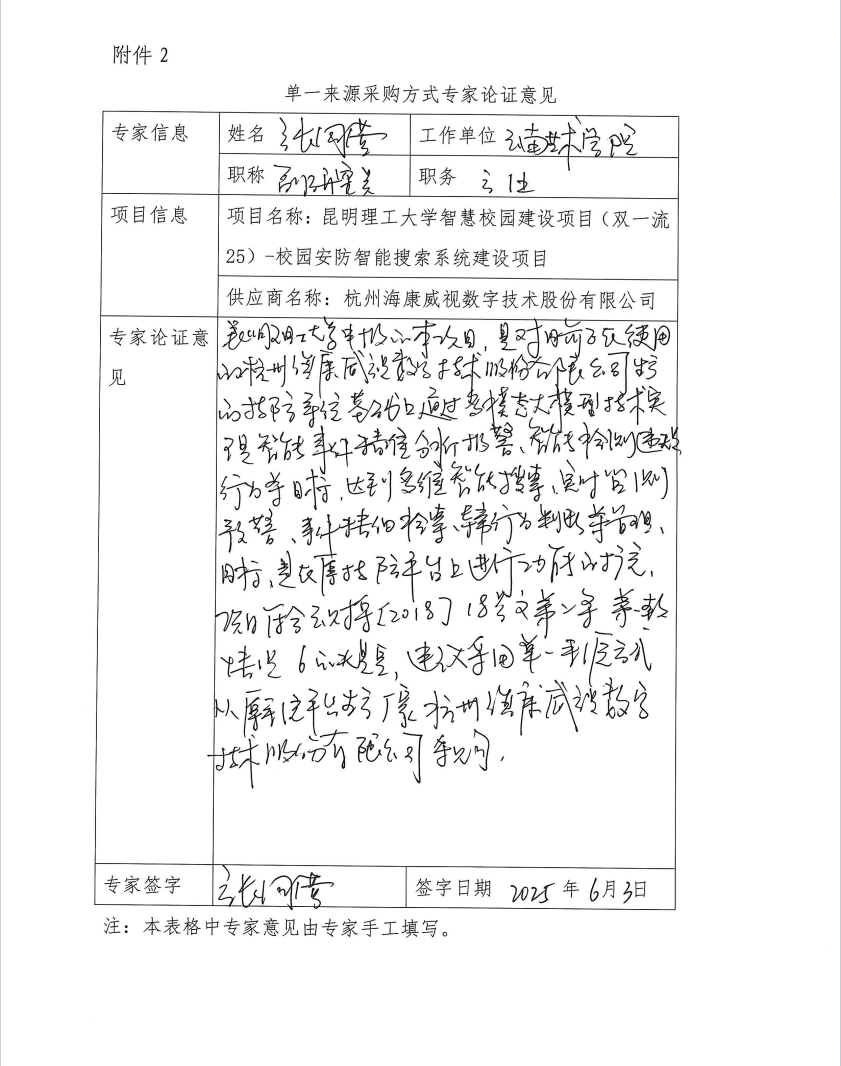 附件 2
单一来源采购方式专家论证意见
专家信息 姓名 工作单位 云南艺术学院
职称 副研究员 职务 主任
项目信息 项目名称：昆明理工大学智慧校园建设项目（双一流
25）-校园安防智能搜索系统建设项目
供应商名称：杭州海康威视数字技术股份有限公司
专家论证意见
昆明理工大学申报的本项目，是对目前正在使用
的杭州海康威视数字技术股份有限公司
的技防系统基础上通过多模态大模型技术实
现智能事件精准分析报警、智能识别
行为等目标，达到多维智能搜索、实时识别
预警、事件精细检索、行为判断等管理
目标，是在原技防平台上进行功能的扩充，
项目符合〔2018〕18号文第二条第一款
情况6的，建议采用单一来源方式
从原系统平台厂家杭州海康威视数字
技术股份有限公司采购。
专家签字 签字日期 2025 年 6月3日
注：本表格中专家意见由专家手工填写。